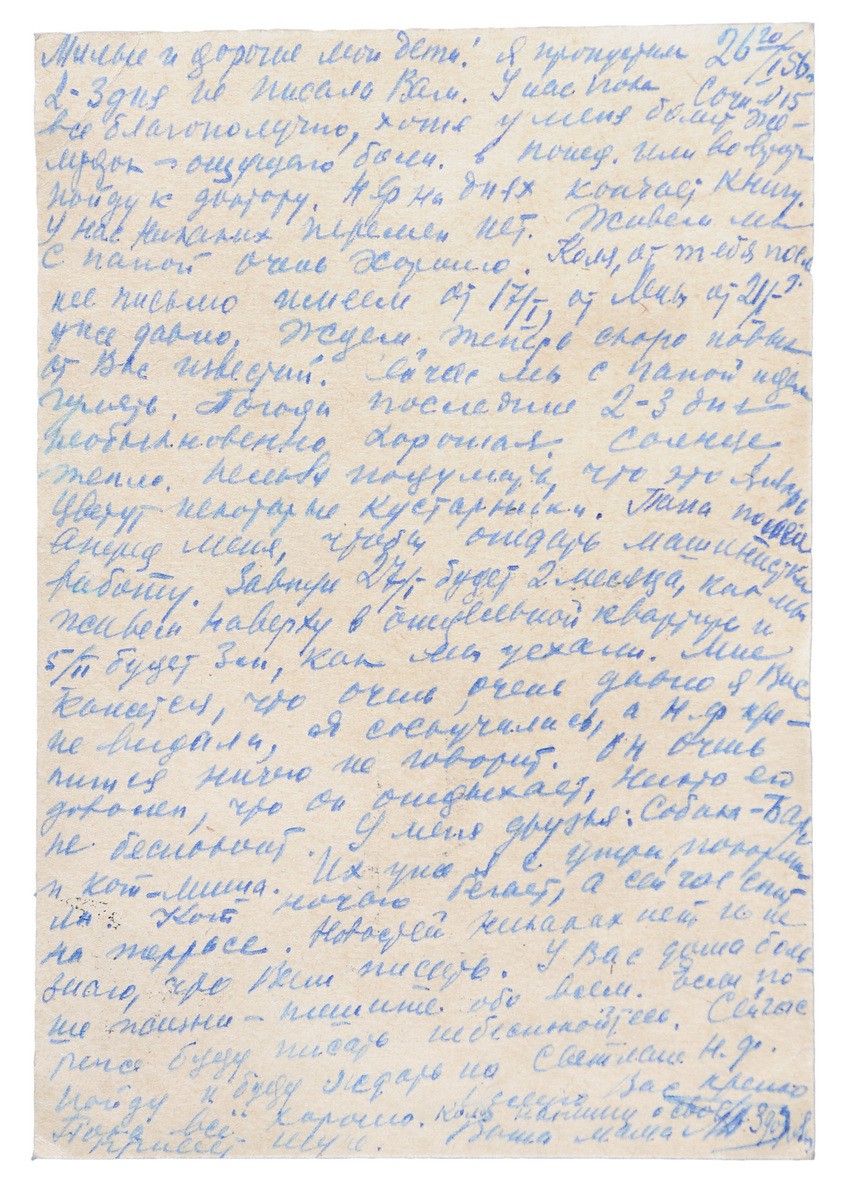 Милые и дорогие мои дети! Я пропустила 26 20/I 56 г.
2-3 дня не писала Вам. У нас пока Сочи
все благополучно, хотя у меня болит же-
лудок – ощущаю боли. в понед. или во вторн
пойду к доктору. Н.Ф на днях кончает книгу.
У нас никаких перемен нет. Живем мы
с папой очень хорошо. Коля, от тебя посл
нее письмо имеем от 17/I, от Лены от 21/I
уже давно. Ждем теперь скоро новых
от Вас известий. Сейчас мы с папой идем
гулять. Погода последние 2-3 дня
необыкновенно хорошая. Солнце,
тепло. Нельзя подумать, что это Январь
Цветут некоторые кустарники. Папа пошел
вперед меня, чтобы отдать машинистке
работу. Завтра 27/I будет 2 месяца, как мы
живем наверху в отдельной квартире и
5/II будет 3 м, как мы уехали. Мне
кажется, что очень, очень давно я Вас
не видала, я соскучилась, а Н.Ф кре-
пится ничего не говорит. Он очень
доволен, что он отдыхает, никто его
не беспокоит. У меня друзья: Собака –
и кот – Миша. Их уже я с утра покорми
ла. Кот ночью бегает, а сейчас спит
на террасе. Новостей никаких нет и не
знаю, что Вам писать. У Вас дома боль
ше жизни – пишите обо всем. Если по-
реже буду писать не беспокойтесь. Сейчас
пойду и буду ждать на Светлане Н.Ф.
Пока всё хорошо. Коля напиши о своем здор
Привет Ваша мама